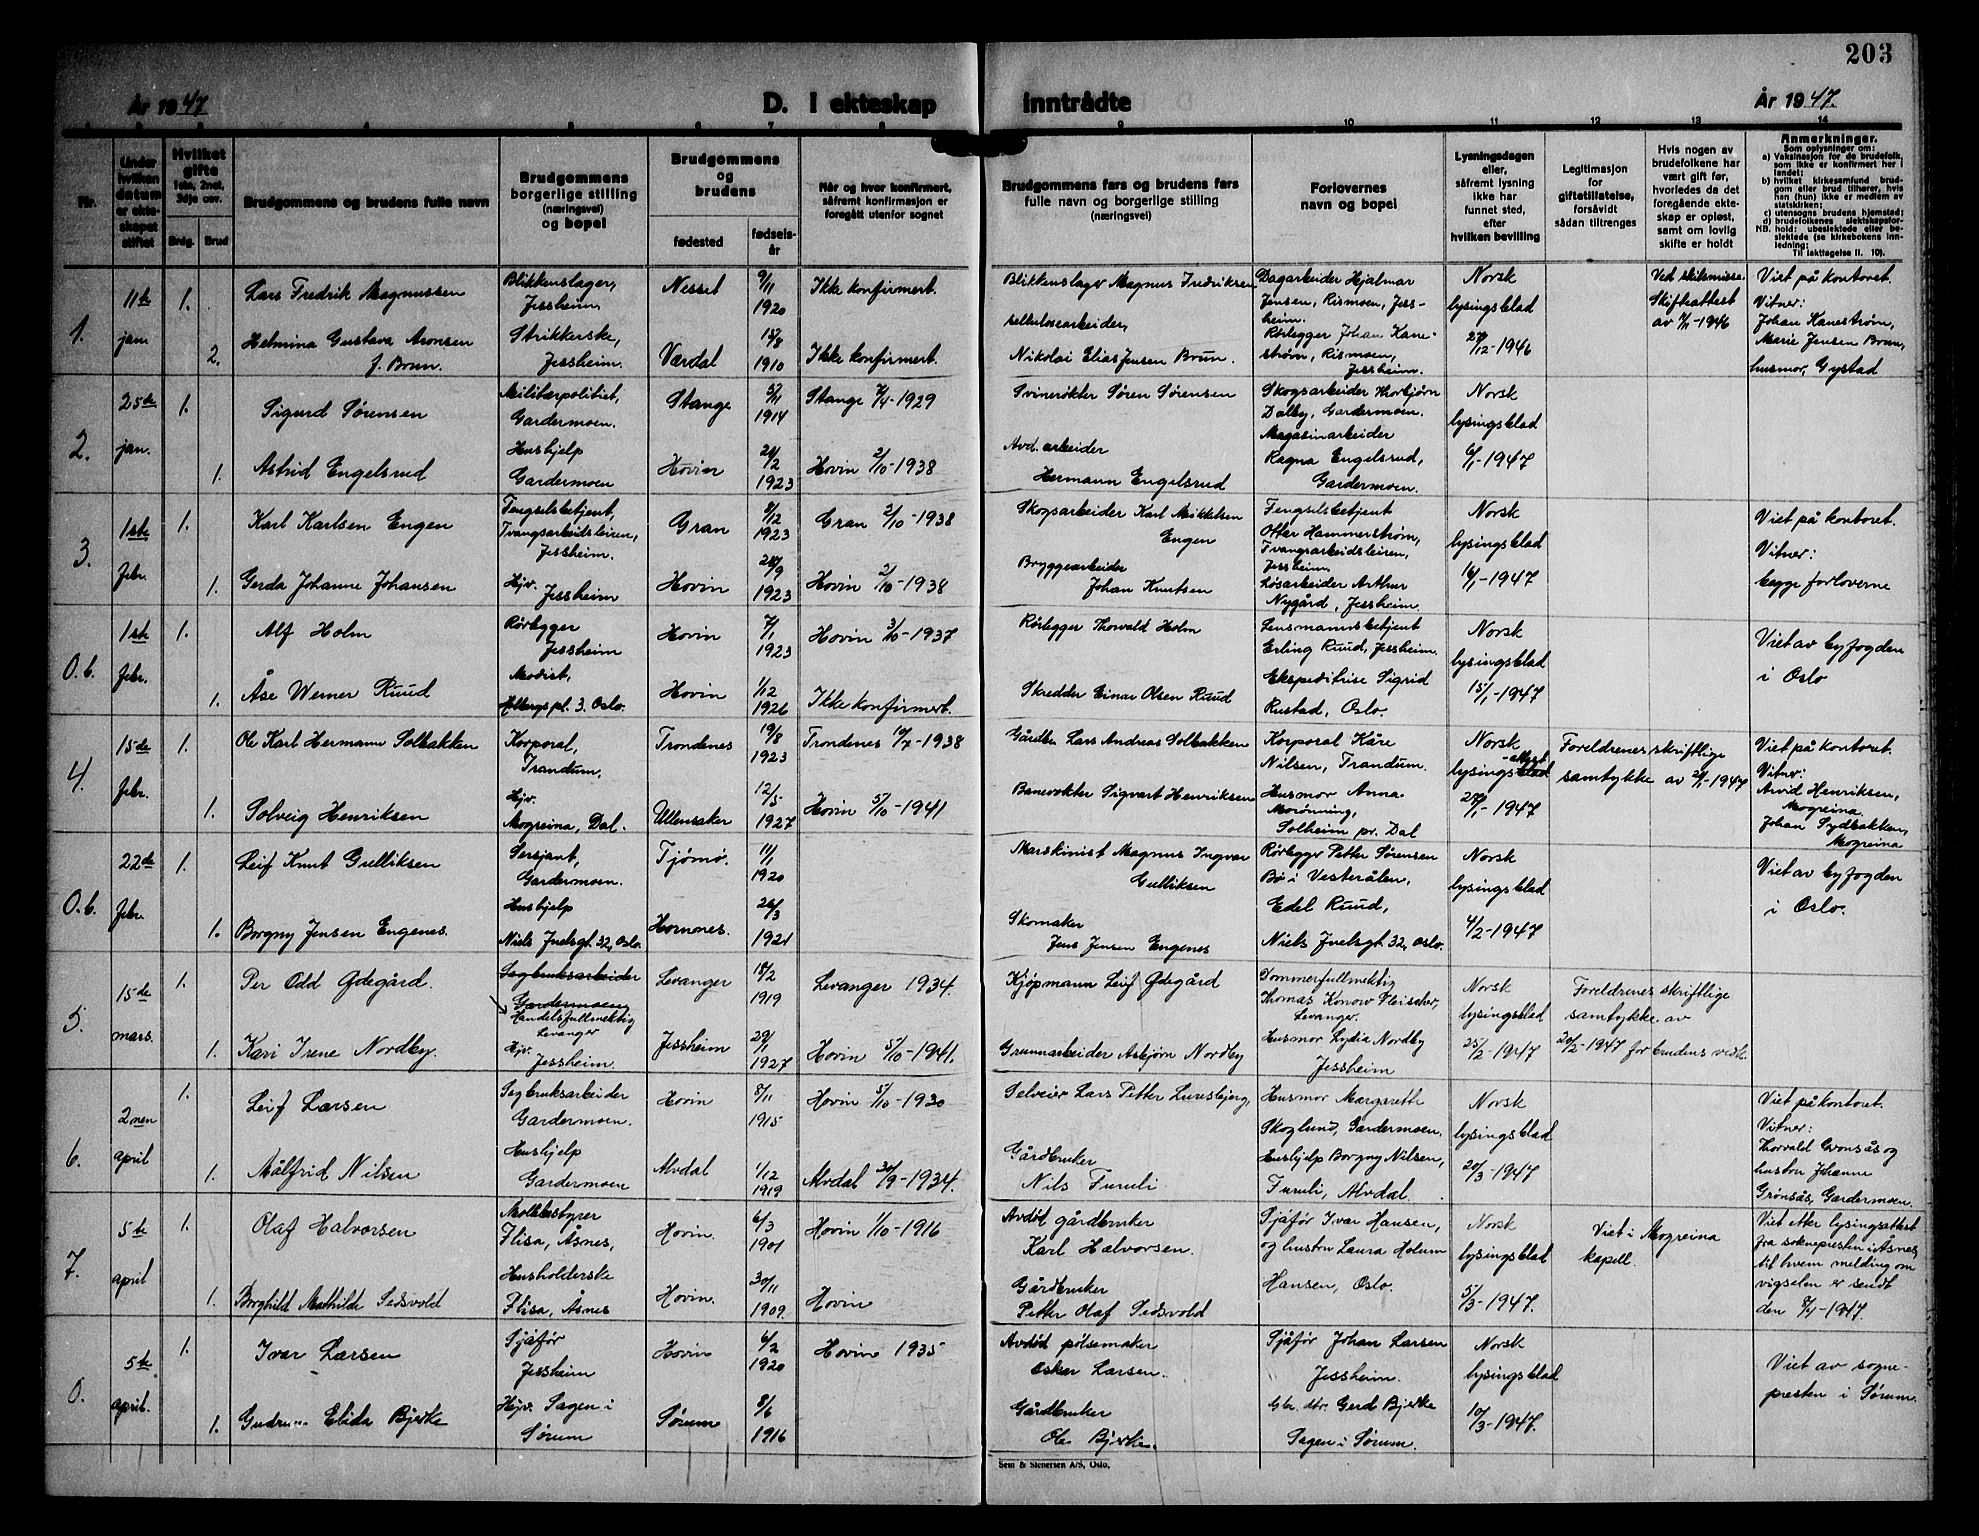 203
År 1947
D. I ekteskap inntrådte
År 1947.
1 2 3 4 5 6 7 8 9 10 11 12 13 14
Nr.
Under hvilken datum er ekteskapet stiftet
Hvilket gifte 1ste, 2net, 3dje osv.
Brdg. Brud
Brudgommens og brudens fulle navn
Brudgommens borgerlige stilling (næringsvei) og bopel
Brudgommens og brudens
fødested
fødselsår
Når og hvor konfirmert, såfremt konfirmasjon er foregått utenfor sognet
Brudgommens fars og brudens fars fulle navn og borgerlige stilling (næringsvei)
Forlovernes navn og bopel
Lysningsdagen eller, såfremt lysning ikke har funnet sted, efter hvilken bevilling
Legitimasjon for giftetillatelse, forsåvidt sådan tiltrenges
Hvis nogen av brudefolkene har vært gift før, hvorledes da det foregående ekteskap er opløst, samt om lovlig skifte er holdt
Anmerkninger.
Som oplysninger om:
a) Vaksinasjon for de brudefolk, som ikke er konfirmert her i landet;
b) hvilket kirkesamfund brudgom eller brud tilhører, hvis han (hun) ikke er medlem av statskirken;
c) utensogns brudens hjemsted;
d) brudefolkenes slektskapsforhold: ubeslektede eller beslektede (se kirkebokens innledning;
NB.
Til iakttagelse II. 10).
1. 11te jan. 1. Lars Fredrik Magnussen
Blikkenslager, Jessheim.
Nesset 9/11 1920
Ikke konfirmert.
Blikkenslager Magnus Fredriksen
Dagarbeider Hjalmar Jensen, Rismoen, Jessheim.
Norsk lysingsblad 27/12-1946
Ved skilsmisse. Skifteattest av 7/11-1946
Viet på kontoret. Vitner: Johan Kanestrøm, Marie Jensen Brun, husmor, Gystad
2. Helmina Gustava Aronsen f. Brun.
Strikkerske, Jessheim.
Værdal 15/8 1910
Ikke konfirmert.
Cellulosearbeider, Nikolai Elias Jensen Brun.
Rørlegger Johan Kanestrøm, Rismoen, Jessheim.
2. 25de jan. 1. Sigurd Sørensen
Militærpolitiet, Gardermoen.
Stange 5/11 1914
Stange 7/4-1929
Svinerøkter Søren Sørensen
Skogsarbeider Thorbjørn Dalby, Gardermoen.
Norsk lysingsblad 6/1-1947
1. Astrid Engelsrud
Hushjelp Gardermoen
Hovin 24/2 1923
Hovin 2/10-1938
Avd. arbeider Hermann Engelsrud
Magasinarbeider Ragna Engelsrud, Gardermoen.
3. 1ste febr. 1. Karl Karlsen Engen
Fengselsbetjent, Tvangsarbeidsleiren, Jessheim.
Gran 8/12 1923
Gran 2/10-1938
Skogsarbeider Karl Mikkelsen Engen
Fengselsbetjent Ottar Hammerstrøm, Tvangsarbeidsleiren, Jessheim.
Norsk lysingsblad 16/1-1947
Viet på kontoret. Vitner: begge forloverne
1. Gerda Johanne Johansen
Hjv. Jessheim
Hovin 28/9 1923
Hovin 2/10-1938
Bryggearbeider Johan Knutsen
Løsarbeider Arthur Nygård, Jessheim.
0.b. 1ste febr. 1. Alf Holm
Rørlegger Jessheim
Hovin 7/1 1923
Hovin 3/10-1937
Rørlegger Thorvald Holm
Lensmannsbetjent Erling Ruud, Jessheim.
Norsk lysingsblad 15/1-1947
Viet av byfogden i Oslo
1. Åse Werner Ruud
Modist, Holbergs pl. 3. Oslo.
Hovin 1/12 1926
Ikke konfirmert.
Skredder Einar Olsen Ruud
Ekspeditrise Sigrid Rustad, Oslo.
4. 15de febr. 1. Ole Karl Hermann Solbakken
Korporal, Trandum.
Trondenes 19/8 1923
Trondenes 10/7-1938
Gårdbr. Lars Andreas Solbakken
Korporal Kåre Nilsen, Trandum.
Norsk lysingsblad 27/1-1947
Foreldrenes skriftlige samtykke av 21/1-1947
Viet på kontoret. Vitner: Arvid Henriksen, Mogreina. Johan Sydbakken, Mogreina
1. Solveig Henriksen
Hjv. Mogreina, Dal.
Ullensaker 12/5 1927
Hovin 5/10-1941
Banevokter Sigvart Henriksen
Husmor Anna Solheim pr. Dal
0.b. 22de febr. 1. Leif Knut Gulliksen
Sersjant, Gardermoen.
Tjømø. 11/1 1920
Maskinist Magnus Ingvar Gulliksen
Rørlegger Petter Sørensen Bø i Vesterålen,
Norsk lysingsblad 4/2-1947
Viet av byfogden i Oslo.
1. Borgny Jensen Engenes.
Hushjelp Niels Juelsgt. 32, Oslo.
Hornnes. 26/3 1921
Skomaker Jens Jensen Engenes
Edel Ruud, Niels Juelsgt. 32, Oslo.
5. 15de mars. 1. Per Odd Ødegård.
Sagbruksarbeider Gardermoen
Handelsfullmektig Levanger
Levanger 18/2 1919
Levanger 1934.
Kjøpmann Leif Ødegård
Dommerfullmektig Thomas Konow Fleischer, Levanger.
Norsk lysingsblad 25/2-1947
Foreldrenes skriftlige samtykke av 20/2-1947 for brudens vedk.
1. Kari Irene Nordby.
Hjv. Jessheim.
Jessheim 29/1 1927
Hovin 5/10-1941.
Grunnarbeider Asbjørn Nordby
Husmor Lydia Nordby Jessheim
6. 2nen april 1. Leif Larsen
Sagbruksarbeider Gardermoen.
Hovin 8/11 1915
Hovin 5/10-1930
Selveier Lars Petter Lunsbjerg,
Husmor Margareth Skoglund, Gardermoen.
Norsk lysingsblad 20/3-1947
Viet på kontoret. Vitner: Thorvald Grønsås og hustru Johanne Grønsås, Gardermoen.
1. Målfrid Nilsen
Hushjelp Gardermoen
Alvdal 1/12 1919
Alvdal 30/9-1934.
Gårdbruker Nils Furuli
Hushjelp Borgny Nilsen, Furuli, Alvdal.
7. 5te april 1. Olaf Halvorsen
Møllebestyrer Flisa, Åsnes,
Hovin. 6/3 1901
Hovin 1/10-1916
Avdøt gårdbruker Karl Halvorsen.
Sjåfør Ivar Hansen, og hustru Laura Holum Hansen, Oslo.
Norsk lysingsblad 5/3-1947.
Viet i Mogreina kapell.
Viet etter lysingsattest fra soknepresten i Åsnes til hvem melding om vigselen er sendt den 9/4-1947.
1. Borghild Mathilde Sedsvold
Husholderske Flisa, Åsnes
Hovin. 30/11 1909.
Hovin
Gårdbruker Petter Olaf Sedsvold
0. 5te april. 1. Ivar Larsen
Sjåfør Jessheim
Hovin 6/2 1920
Hovin 1935
Avdød pølsemaker Oskar Larsen.
Sjåfør Johan Larsen Jessheim.
Norsk lysingsblad 10/3-1947.
Viet av sognepresten i Sørum.
1. Gudrun Elida Bjerke
Hjv. Sagen i Sørum
Sørum 8/6 1916
Gårdbruker Ole Bjerke.
Gbr. dtr. Gerd Bjerke Sagen i Sørum.
Sem & Stenersen A/S, Oslo.